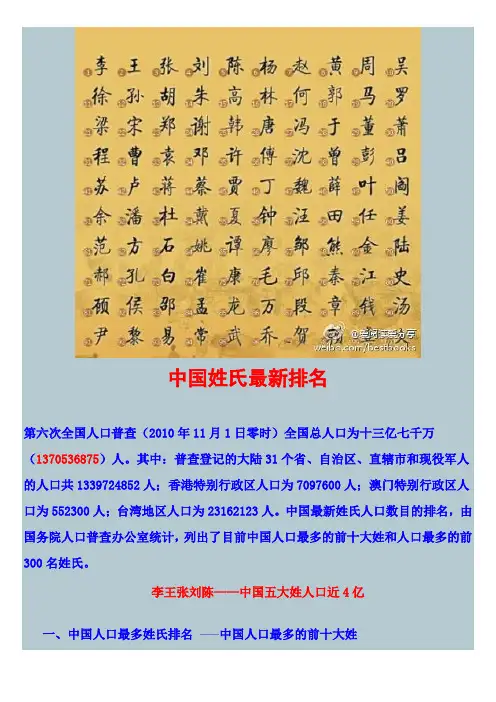 李 王 张 刘 陈 杨 赵 黄 周 吴
徐 孙 胡 朱 高 林 何 郭 马 罗
梁 宋 郑 谢 韩 唐 冯 于 董 萧
程 曹 袁 邓 许 傅 沈 曾 彭 吕
苏 卢 蒋 蔡 贾 丁 魏 薛 叶 阎
余 潘 杜 戴 夏 钟 汪 田 任 姜
范 方 石 姚 谭 廖 邹 熊 金 陆
郝 孔 白 崔 康 毛 邱 秦 江 史
顾 侯 邵 孟 龙 万 段 章 钱 汤
尹 黎 易 常 武 乔 贺
weibo.com/bestbooks
中国姓氏最新排名
第六次全国人口普查（2010年11月1日零时）全国总人口为十三亿七千万
（1370536875）人。其中：普查登记的大陆31个省、自治区、直辖市和现役军人
的人口共1339724852人；香港特别行政区人口为7097600人；澳门特别行政区人
口为552300人；台湾地区人口为23162123人。中国最新姓氏人口数目的排名，由
国务院人口普查办公室统计，列出了目前中国人口最多的前十大姓和人口最多的前
300名姓氏。
李王张刘陈——中国五大姓人口近4亿
一、中国人口最多姓氏排名 ——中国人口最多的前十大姓